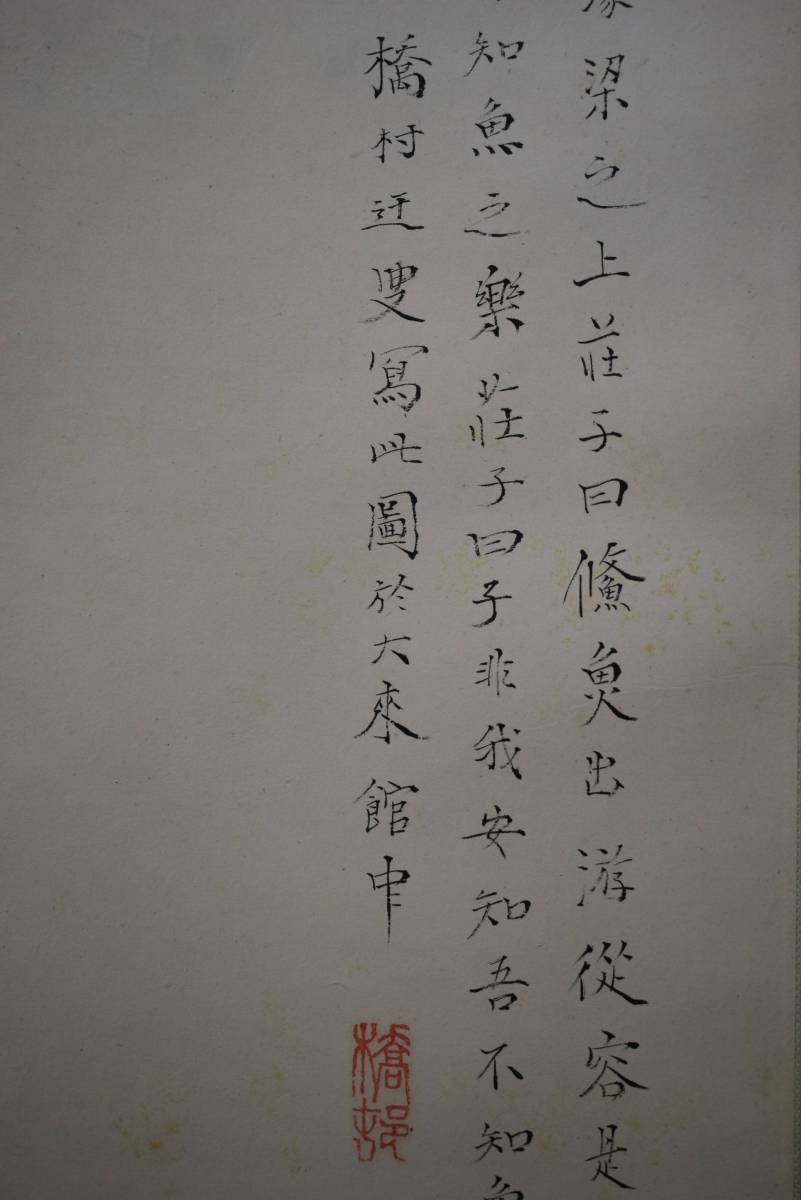 濠梁之上莊子曰儵魚出游從容是
知魚之樂莊子曰子非我安知吾不知魚
橋村迂叟寫此圖於大來館中
橋邨